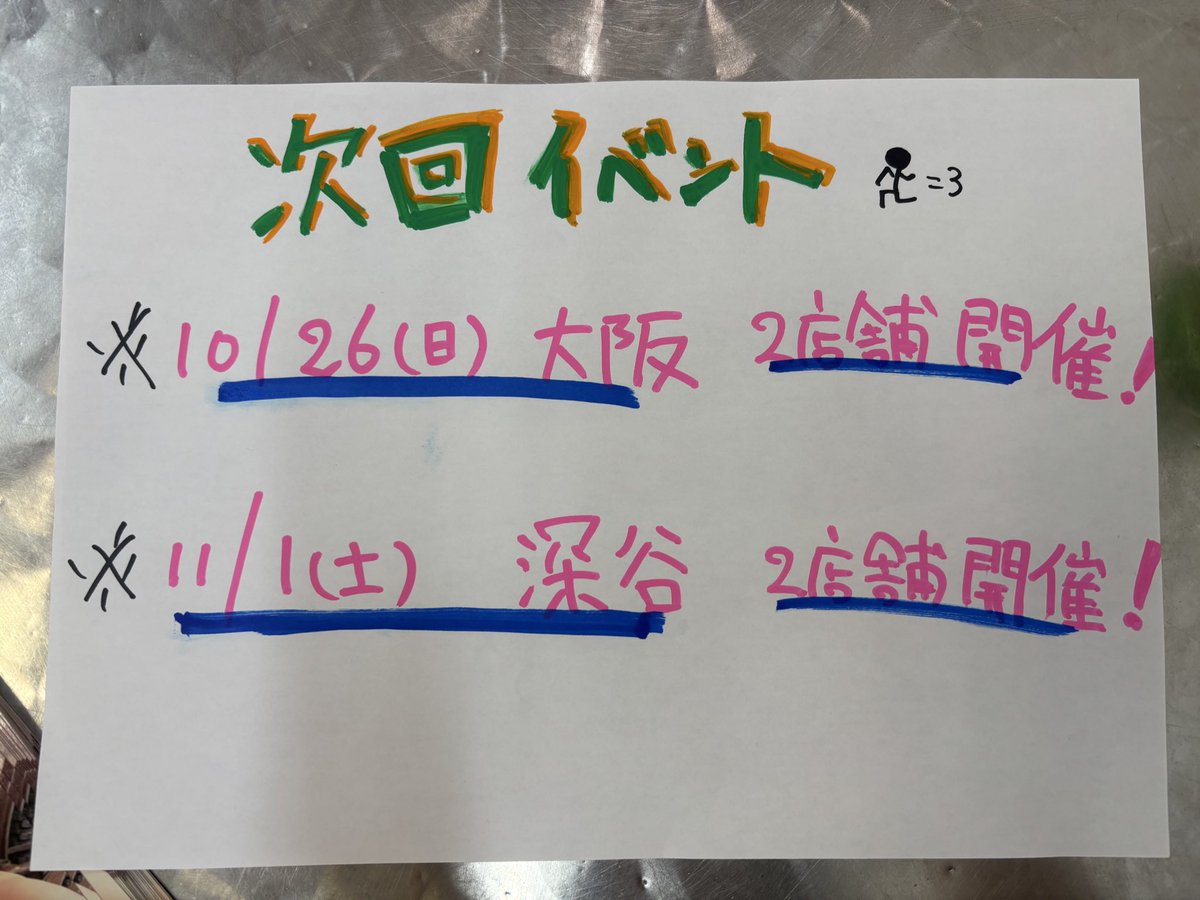 次回イベント =3
※10/26(日) 大阪 2店舗開催!
※11/1(土) 深谷 2店舗開催!